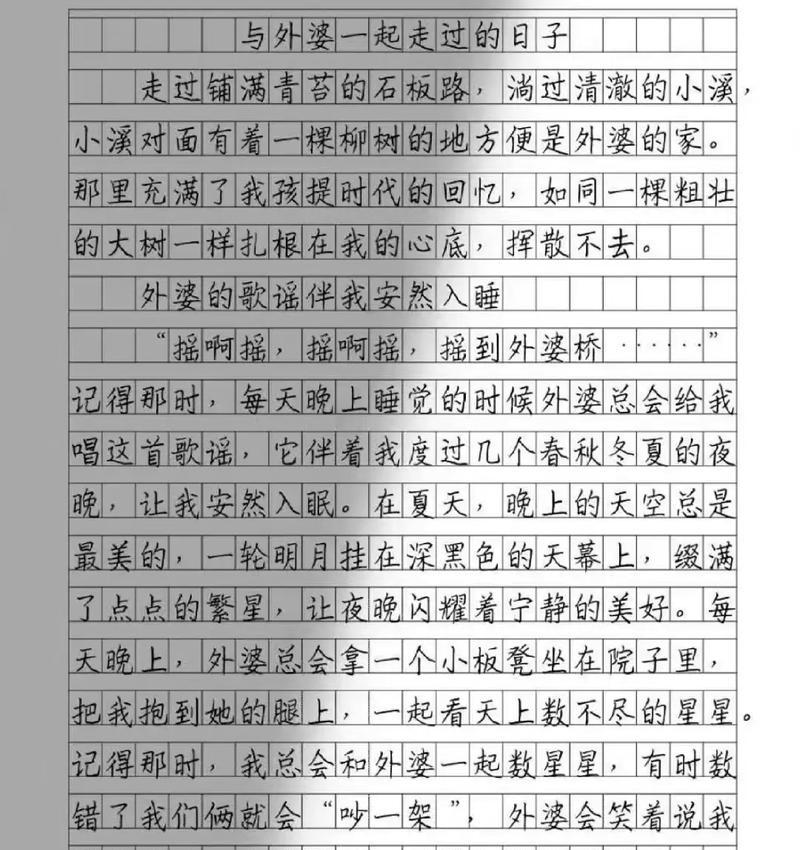 与外婆一起走过的日子
走过铺满青苔的石板路，淌过清澈的小溪，
小溪对面有着一棵柳树的地方便是外婆的家。
那里充满了我孩提时代的回忆，如同一棵粗壮
的大树一样扎根在我的心底，挥散不去。
外婆的歌谣伴我安然入睡
“摇啊摇，摇啊摇，摇到外婆桥……”
记得那时，每天晚上睡觉的时候外婆总会给我
唱这首歌谣，它伴着我度过几个春秋冬夏的夜
晚，让我安然入眠。在夏天，晚上的天空总是
最美的，一轮明月挂在深黑色的天幕上，缀满
了点点的繁星，让夜晚闪耀着宁静的美好。每
天晚上，外婆总会拿一个小板凳坐在院子里，
把我抱到她的腿上，一起看天上数不尽的星星。
记得那时，我总会和外婆一起数星星，有时数
错了我们俩就会“吵一架”，外婆会笑着说我